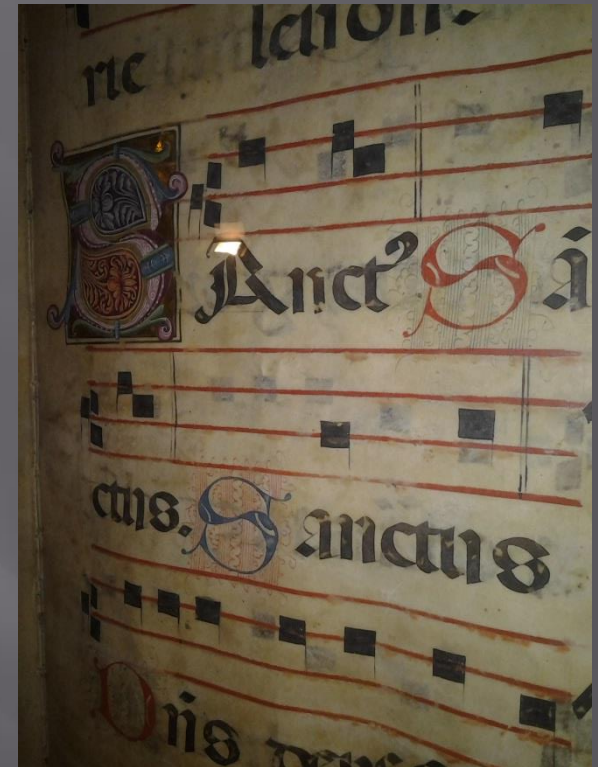 rie leison.
SAnctꝰ Sā
ctus. Sanctus
Dñs deus